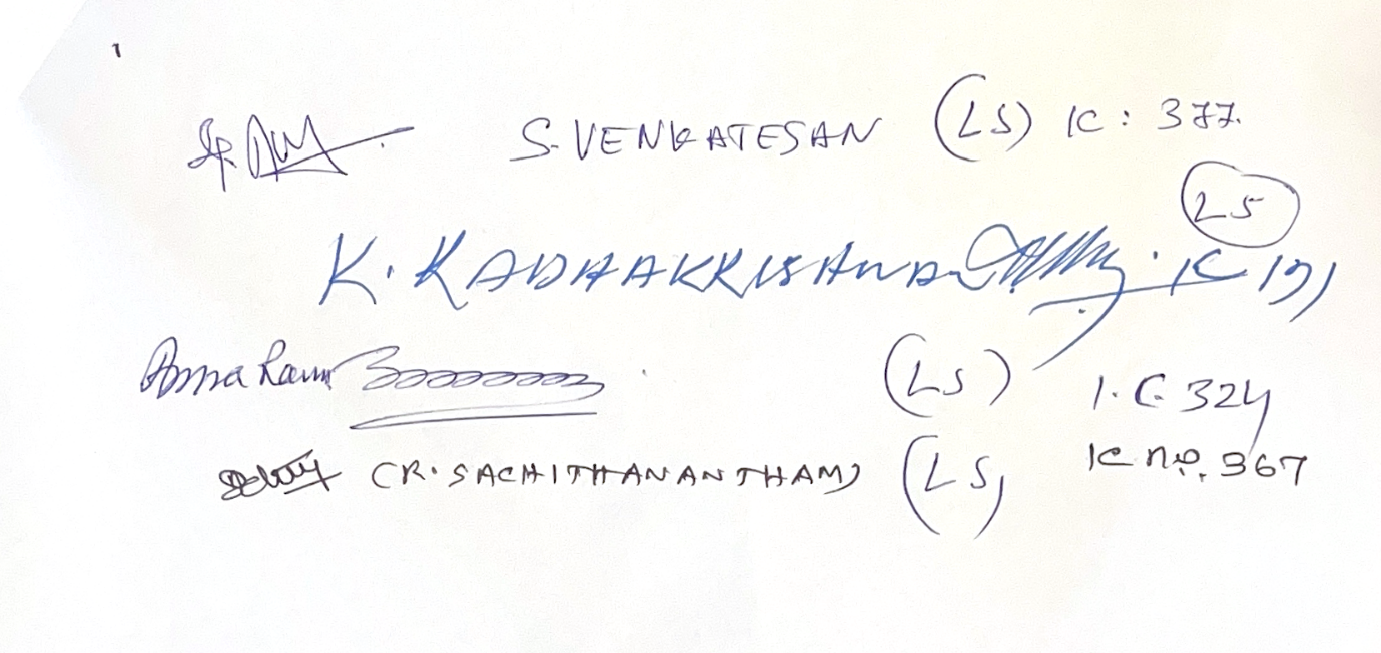 S. VENKATESAN (LS) IC : 377.
LS
K. RADHAKRISHNAN IC 131
Amra Ram (LS) I.C. 324
(R. SACHITHANANTHAM) (LS) IC no. 367